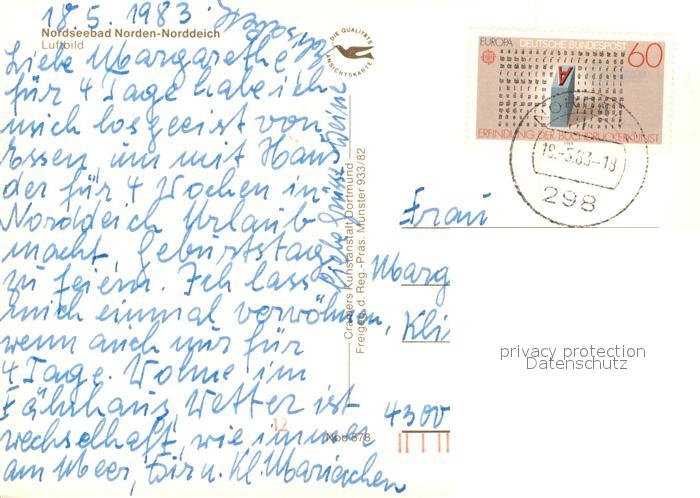 18.5.1983
Nordseebad Norden-Norddeich
Luftbild
Liebe Margarethe
für 4 Tage habe ich
mich losgeeist von
Essen, um mit Hans
der für 4 Wochen in
Norddeich Urlaub
macht, Geburtstag
zu feiern. Ich lass
mich einmal verwöhnen,
wenn auch nur für
4 Tage. Wohne im
Fährhaus, Wetter ist
wechselhaft, wie immer
am Meer, Für u. Kl. Mariechen
Liebe Grüsse Deine
DIE QUALITÄTS
ANSICHTSKARTE
Cramers Kunstanstalt Dortmund
Freigeg. d. Reg.-Präs. Münster 933/82
Nou 378
12
EUROPA DEUTSCHE BUNDESPOST 60
A
ERFINDUNG DER BUCHDRUCKERKUNST
18.-5.83-18
298
Frau
Marg
Kli
4300
privacy protection
Datenschutz